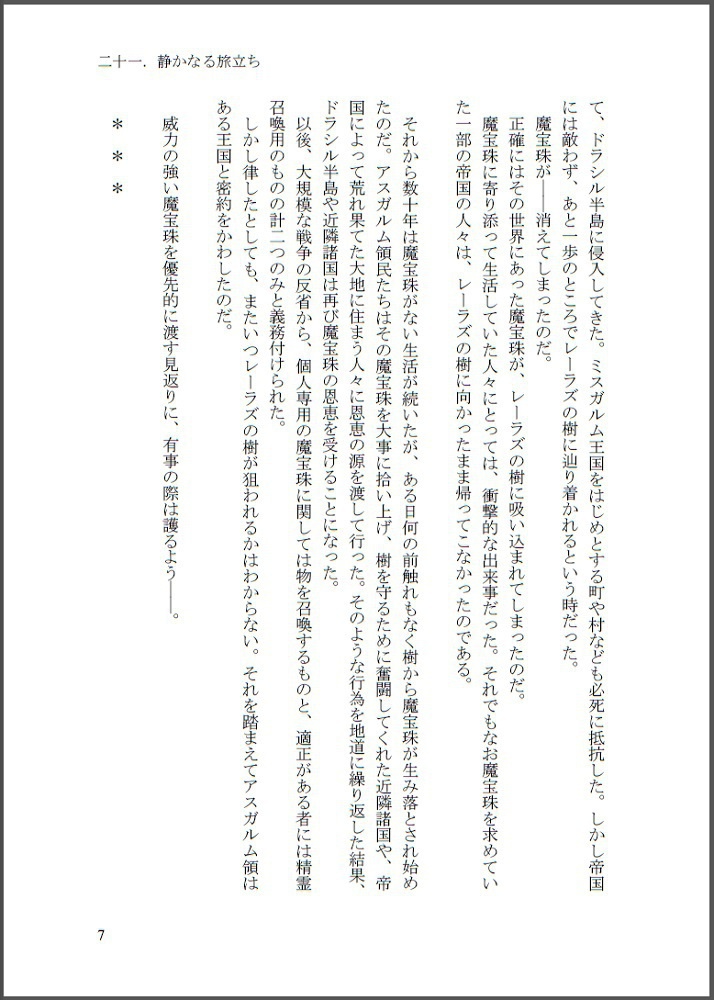 二十一．静かなる旅立ち
て、ドラシル半島に侵入してきた。ミスガルム王国をはじめとする町や村なども必死に抵抗した。しかし帝国
には敵わず、あと一歩のところでレーラズの樹に辿り着かれるという時だった。
魔宝珠が――消えてしまったのだ。
正確にはその世界にあった魔宝珠が、レーラズの樹に吸い込まれてしまったのだ。
魔宝珠に寄り添って生活していた人々にとっては、衝撃的な出来事だった。それでもなお魔宝珠を求めてい
た一部の帝国の人々は、レーラズの樹に向かったまま帰ってこなかったのである。
それから数十年は魔宝珠がない生活が続いたが、ある日何の前触れもなく樹から魔宝珠が生み落とされ始め
たのだ。アスガルム領民たちはその魔宝珠を大事に拾い上げ、樹を守るために奮闘してくれた近隣諸国や、帝
国によって荒れ果てた大地に住まう人々に恩恵の源を渡して行った。そのような行為を地道に繰り返した結果、
ドラシル半島や近隣諸国は再び魔宝珠の恩恵を受けることになった。
以後、大規模な戦争の反省から、個人専用の魔宝珠に関しては物を召喚するものと、適正がある者には精霊
召喚用のものの計二つのみと義務付けられた。
しかし律したとしても、またいつレーラズの樹が狙われるかはわからない。それを踏まえてアスガルム領は
ある王国と密約をかわしたのだ。
威力の強い魔宝珠を優先的に渡す見返りに、有事の際は護るよう――。
＊　＊　＊
7